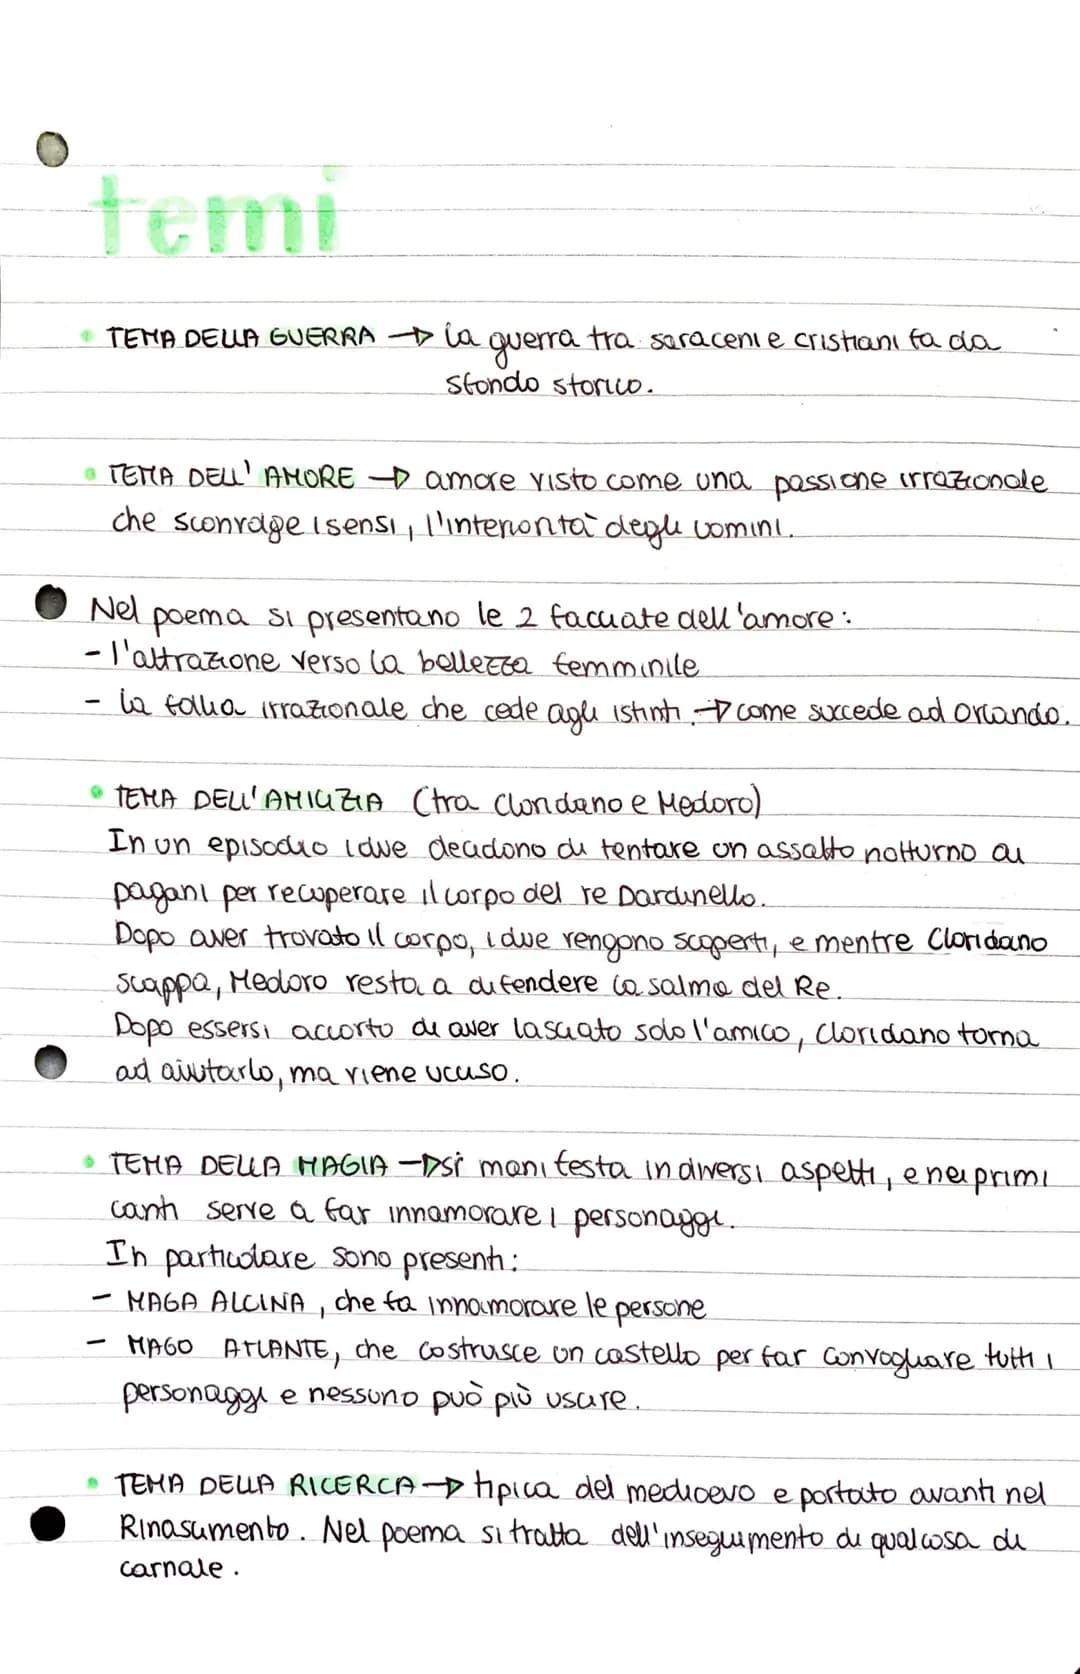 temi
• TEMA DELLA GUERRA → la guerra tra saraceni e cristiani fa da
sfondo storico.
• TEMA DELL' AMORE → amore visto come una passione irrazionale
che sconvolge i sensi, l'interiorità degli uomini.
Nel poema si presentano le 2 facciate dell'amore:
- l'attrazione verso la bellezza femminile
- la follia irrazionale che cede agli istinti. → come succede ad Orlando.
• TEMA DELL'AMICIZIA (tra Cloridano e Medoro)
In un episodio i due decidono di tentare un assalto notturno ai
pagani per recuperare il corpo del re Dardinello.
Dopo aver trovato il corpo, i due vengono scoperti, e mentre Cloridano
scappa, Medoro resta a difendere la salma del Re.
Dopo essersi accorto di aver lasciato solo l'amico, Cloridano torna
ad aiutarlo, ma viene ucciso.
• TEMA DELLA MAGIA → si manifesta in diversi aspetti, e nei primi
canti serve a far innamorare i personaggi.
In particolare sono presenti:
- MAGA ALCINA, che fa innamorare le persone
- MAGO ATLANTE, che costruisce un castello per far convogliare tutti i
personaggi e nessuno può più uscire.
• TEMA DELLA RICERCA → tipica del medioevo e portato avanti nel
Rinascimento. Nel poema si tratta dell'inseguimento di qualcosa di
carnale.